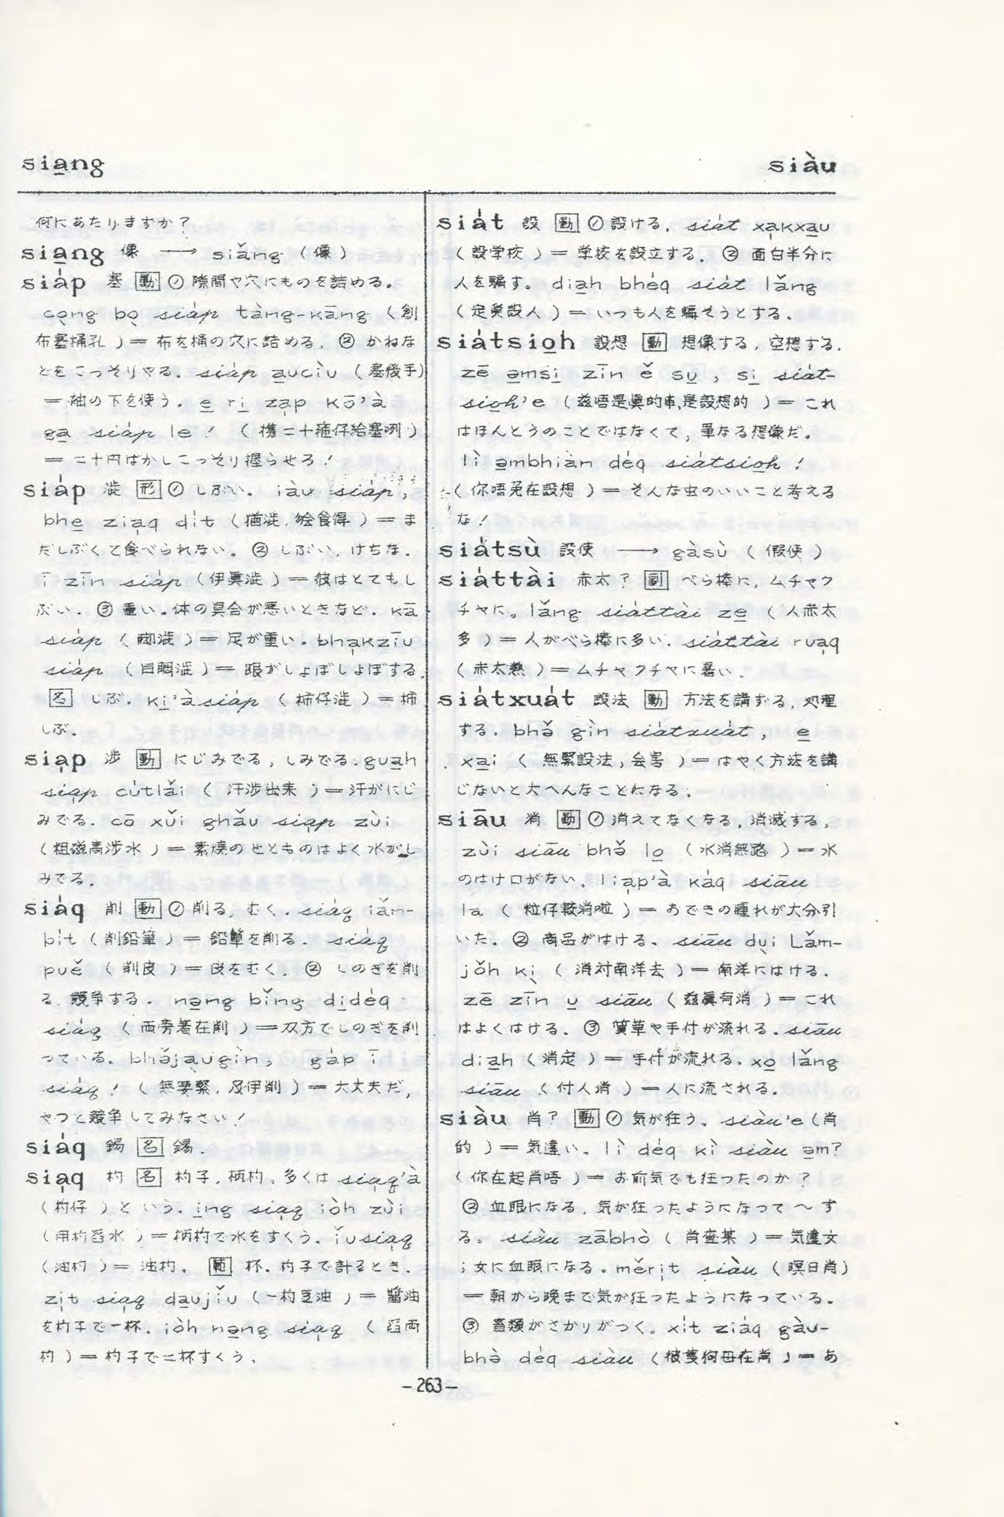 siang
siàu
何にあたりますか?
siang 像 ⟶ siǎng (像)
siáp 塞 動 ① 隙間や穴にものを詰める。
cong bo siáp tàng-kāng (創
布塞桶孔) = 布を桶の穴に詰める. ② かねな
どをこっそりやる. siáp auciu (塞後手)
= 袖の下を使う. e ri zap kō'à
ga siáp le! (携二十箍仔給塞咧)
= 二十円ばかしこっそり握らせる!
siáp 澁 形 ① しぶい. iàu siáp,
bhe ziaq dit (猶澁, 獪食得) = ま
だしぶくて食べられない。 ② しぶい, けちな.
ī zīn siáp (伊眞澁) = 彼はとてもし
ぶい. ③ 重い. 体の具合が悪いときなど. kā
siáp (脚澁) = 足が重い. bhakzīu
siáp (目睭澁) = 眼がしょぼしょぼする.
名 しぶ. kì'à siáp (柿仔澁) = 柿
しぶ.
siap 渉 動 にじみでる, しみでる. guah
siap cútlǎi (汗渉出来) = 汗がにじ
みでる. cō xǔi ghǎu siap zùi
(粗磁高渉水) = 素焼のせとものはよく水がし
みでる.
siáq 削 動 ① 削る, むく. siáq iǎn-
bít (削鉛筆) = 鉛筆を削る. siáq
puě (削皮) = 皮をむく. ② しのぎを削
る, 競争する. nang bǐng didéq
siáq (両旁著在削) = 双方でしのぎを削
っている. bhǒjaugìn, gáp ī
siáq! (無要緊, 及伊削) = 大丈夫だ,
やつと競争してみなさい!
siáq 錫 名 錫.
siaq 杓 名 杓子, 柄杓. 多くは siaq'à
(杓仔) という. ing siaq iòh zùi
(用杓舀水) = 柄杓で水をすくう. iǔ siaq
(油杓) = 油杓. 範 杯. 杓子で計るとき.
zit siaq daujiǔ (一杓豆油) = 醤油
を杓子で一杯. iòh nang siaq (舀両
杓) = 杓子で二杯すくう.
siát 設 動 ① 設ける. siát xakxau
(設学校) = 学校を設立する. ② 面白半分に
人を騙す. diah bhéq siát lǎng
(定要設人) = いつも人を騙そうとする.
siátsioh 設想 動 想像する, 空想する.
zē amsi zīn ě su, si siát-
sioh'e (玆唔是眞的事, 是設想的) = これ
はほんとうのことではなくて, 単なる想像だ.
lì ambhiàn déq siátsioh!
(你唔免在設想) = そんな虫のいいこと考える
な!
siátsù 設使 ⟶ gàsù (假使)
siáttài 赤太? 副 べら棒に, ムチャク
チャに。 lǎng siáttài ze (人赤太
多) = 人がべら棒に多い. siáttài ruaq
(赤太熱) = ムチャクチャに暑い.
siátxuát 設法 動 方法を講ずる, 処理
する. bhǒ gìn siátxuát, e
xai (無緊設法, 会害) = はやく方法を講
じないと大へんなことになる.
siāu 消 動 ① 消えてなくなる, 消滅する,
zùi siāu bhǒ lo (水消無路) = 水
のはけ口がない. liap'à káq siāu
la (粒仔較消啦) = おできの腫れが大分引
いた. ② 商品がはける. siāu dui Lǎm-
jǒh ki (消対南洋去) = 南洋にはける.
zē zīn u siāu (玆眞有消) = これ
はよくはける. ③ 質草や手付が流れる. siāu
diah (消定) = 手付が流れる. xo lǎng
siāu (付人消) = 人に流される.
siàu 肖? 動 ① 気が狂う. siàu'e (肖
的) = 気違い. lì déq kì siàu am?
(你在起肖唔) = お前気でも狂ったのか?
② 血眼になる, 気が狂ったようになって〜す
る。 siàu zābhò (肖査某) = 気違女
; 女に血眼になる. mērit siàu (暝日肖)
= 朝から晩まで気が狂ったようになっている。
③ 畜類がさかりがつく。 xit ziáq gàu-
bhò déq siàu (彼隻狗母在肖) = あ
-263-